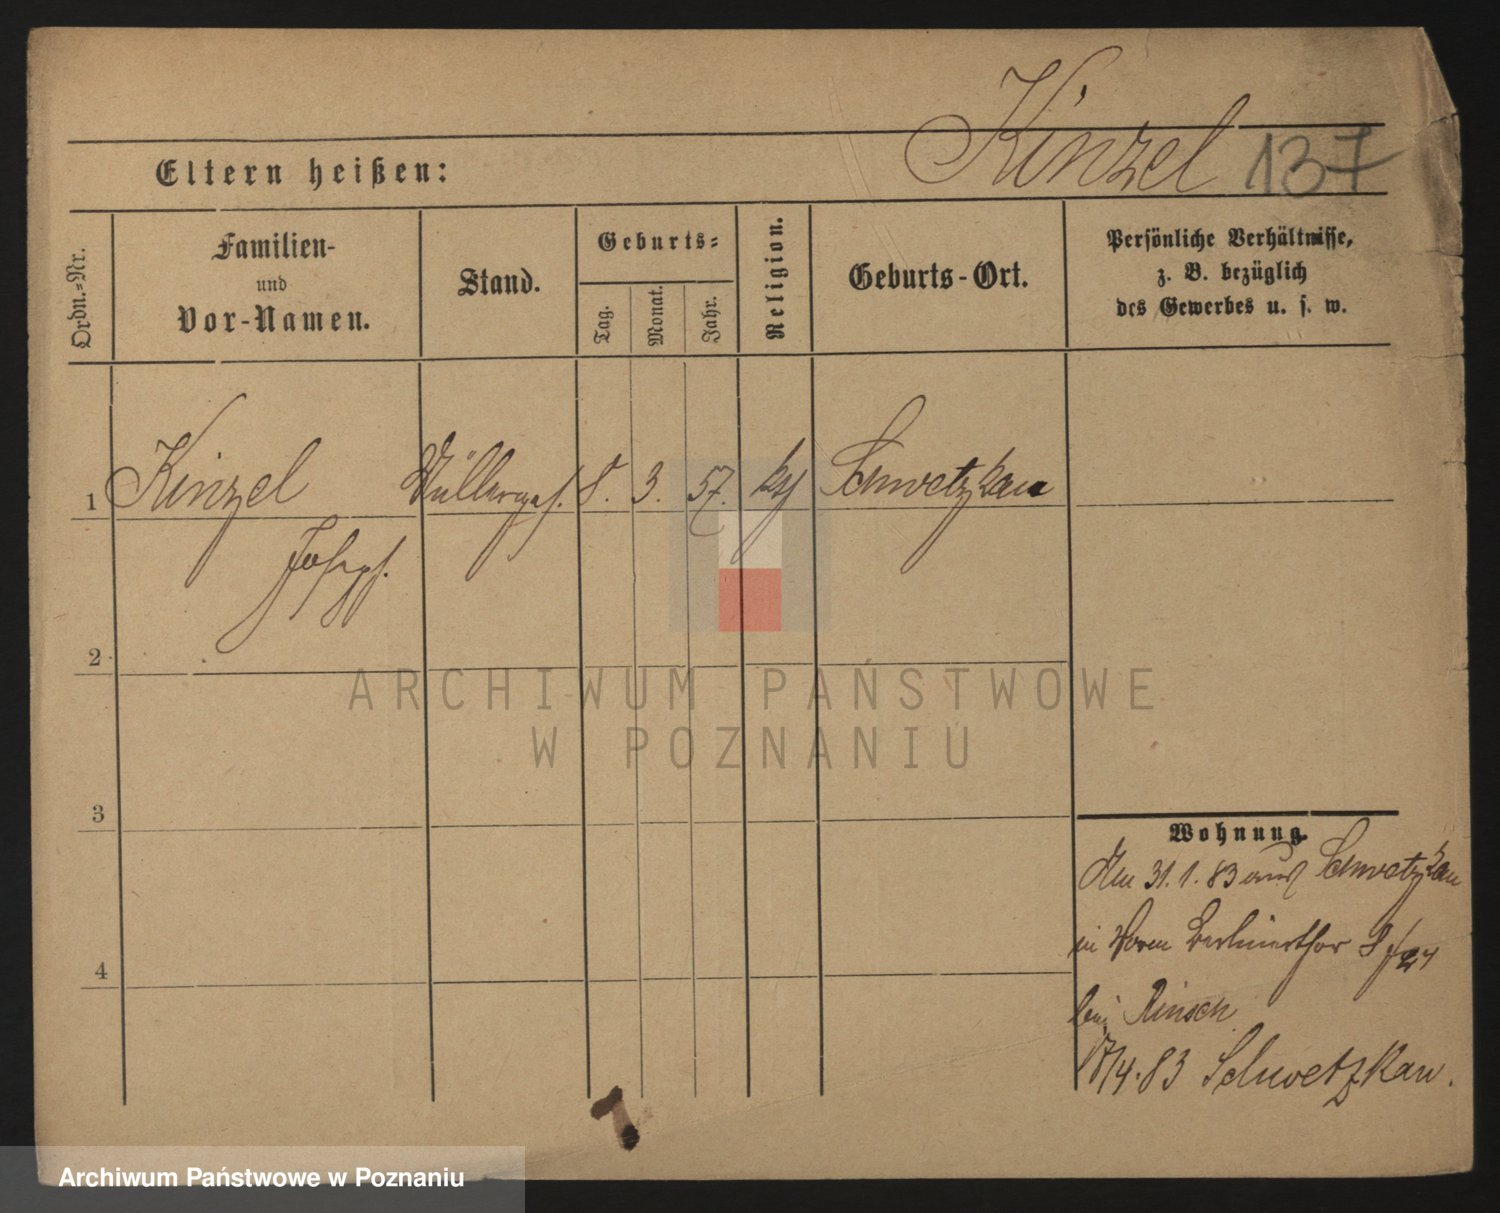 Kinzel 137
Eltern heißen:
Ordn.-Nr.
Familien-
und
Vor-Namen.
Stand.
Geburts-
Tag.
Monat.
Jahr.
Religion.
Geburts-Ort.
Persönliche Verhältnisse,
z. B. bezüglich
des Gewerbes u. s. w.
1 Kinzel Müllerges. 8. 3. 57. kth Schwetzkau
Josef.
2
3
4
Wohnung.
Am 31.1.83 aus Schwetzkau
in Berlinerthor
bei Rinsch
17/4.83 Schwetzkau.
ARCHIWUM PAŃSTWOWE
W POZNANIU
Archiwum Państwowe w Poznaniu